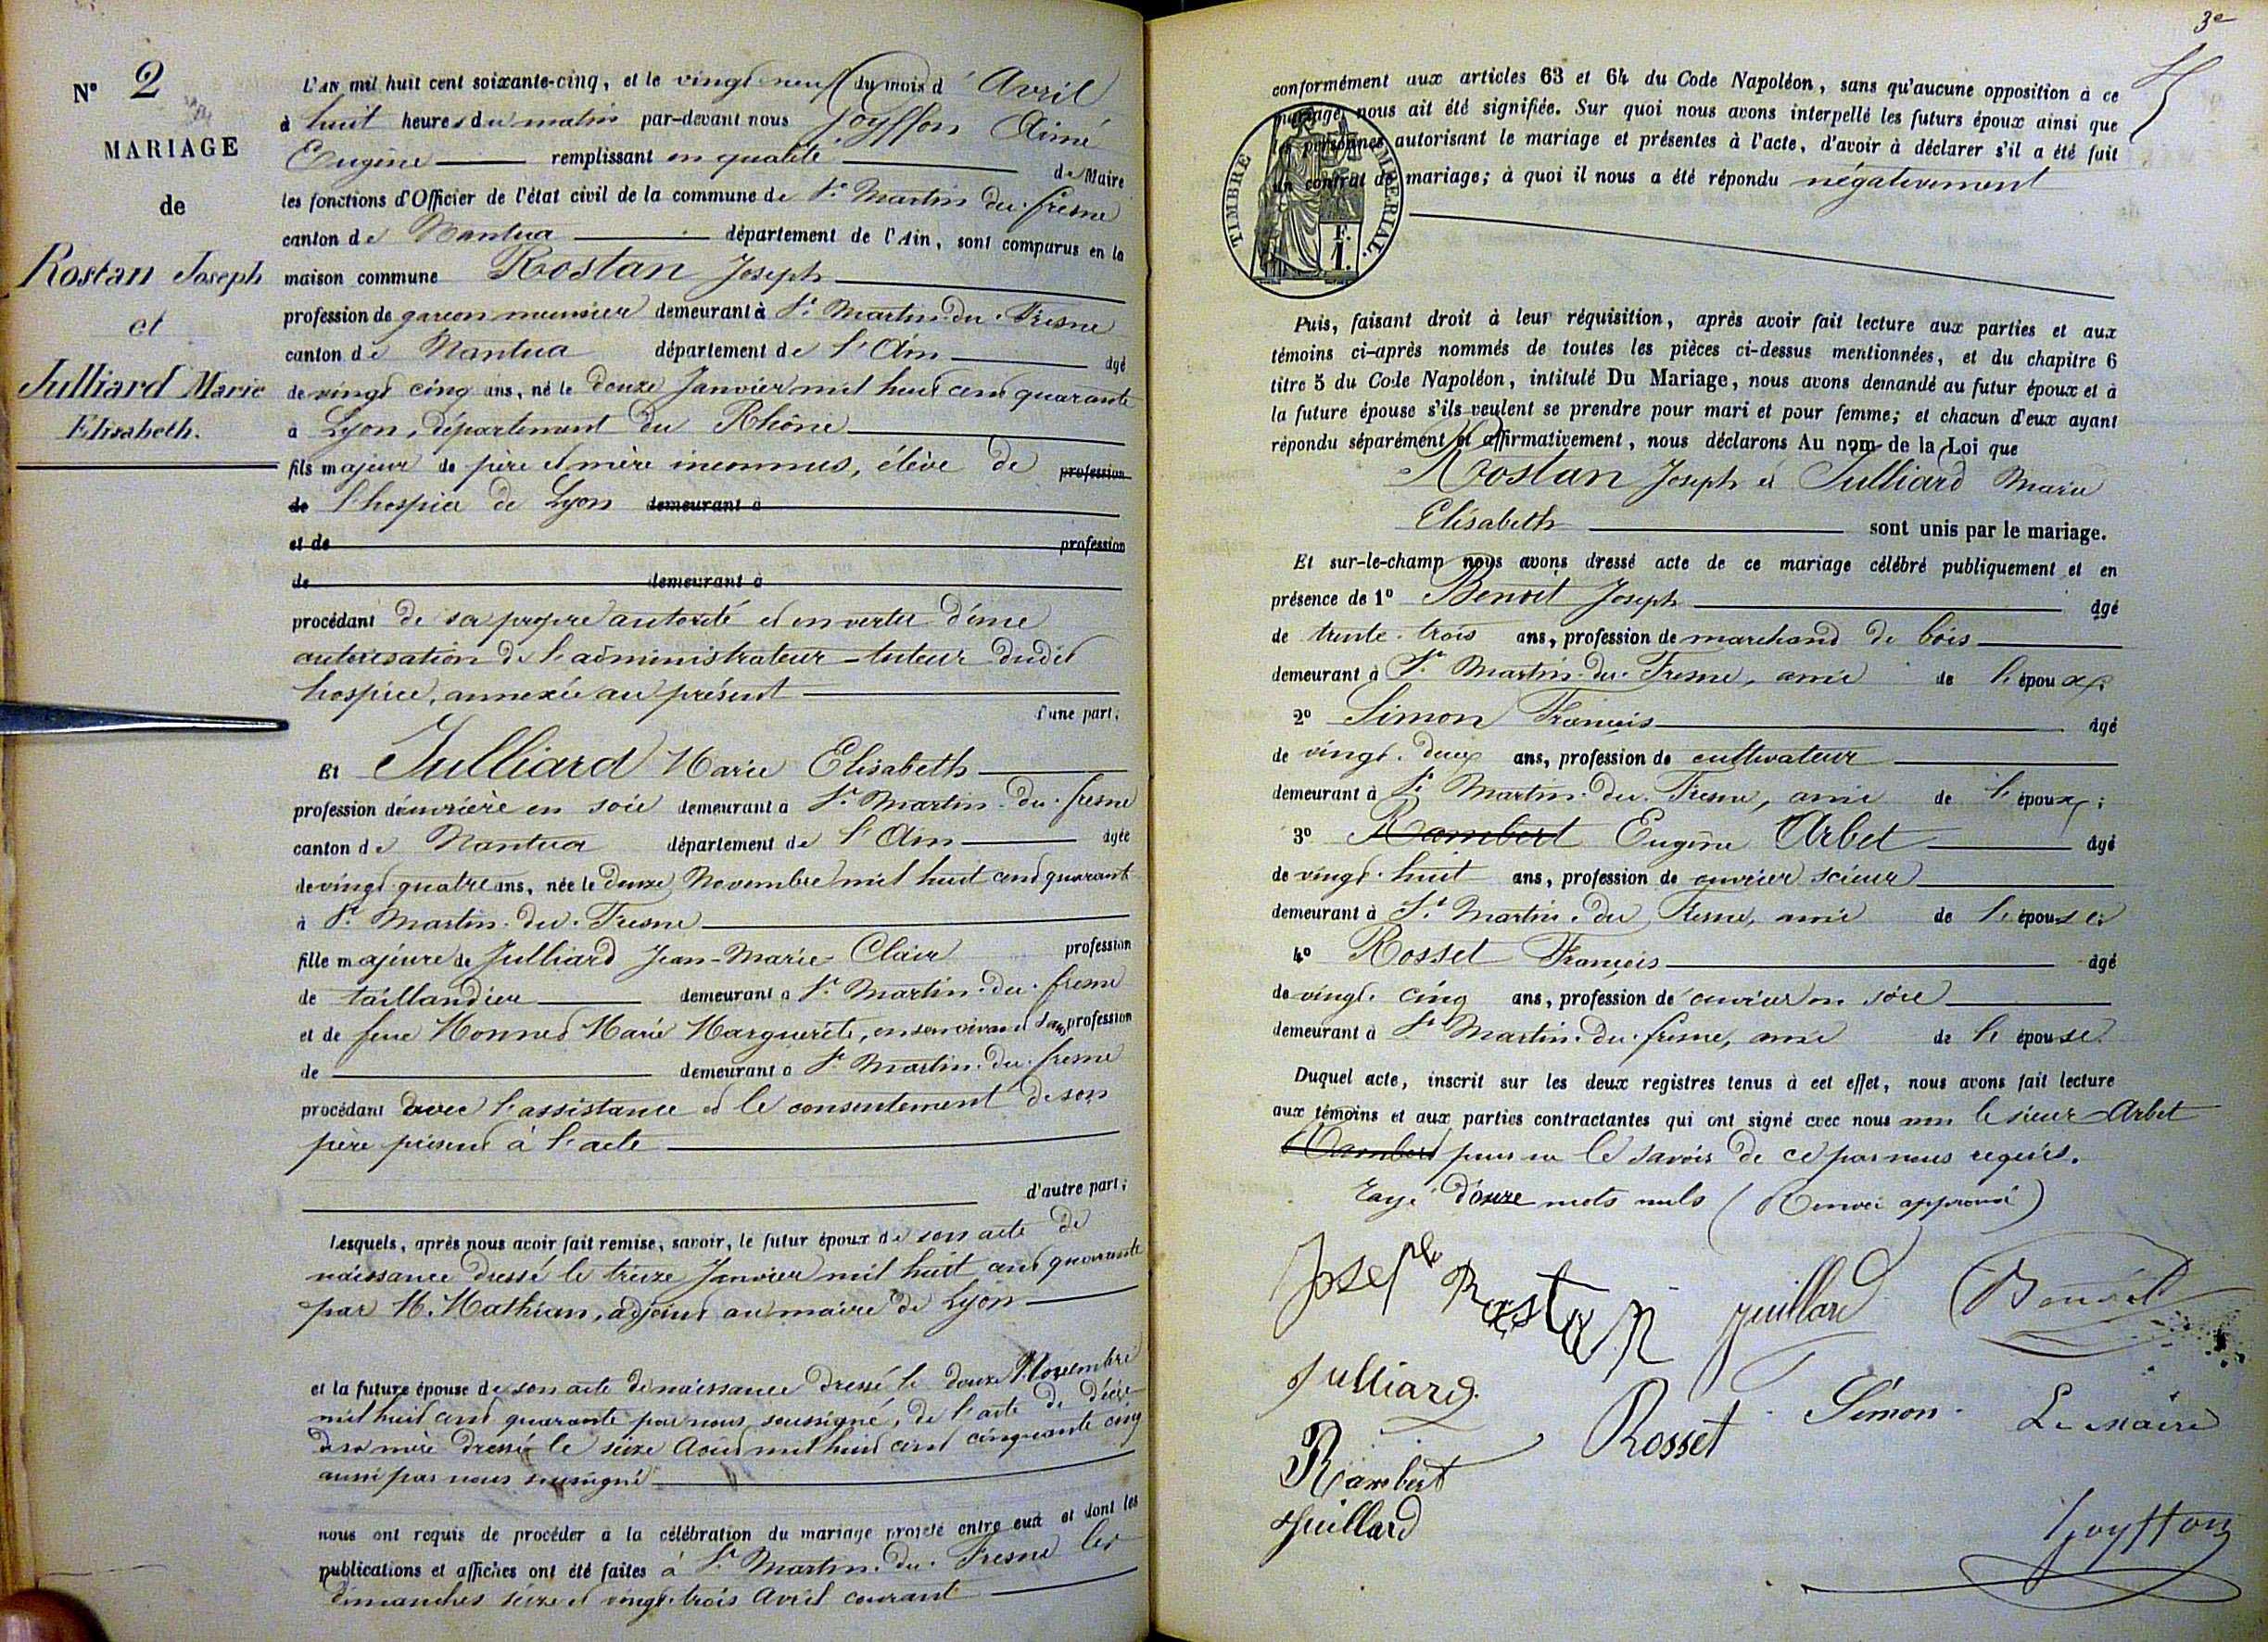 N° 2
MARIAGE
de
Rostan Joseph
et
Julliard Marie
Elisabeth.
L'AN mil huit cent soixante-cinq, et le vingt neuf du mois d' Avril
à huit heures du matin par-devant nous Joyffon Aimé
Eugène remplissant en qualité de Maire
les fonctions d'Officier de l'état civil de la commune de St Martin du fresne
canton de Nantua département de l'Ain, sont comparus en la
maison commune Rostan Joseph
profession de garçon meunier demeurant à St Martin-du-Fresne
canton de Nantua département de l'Ain âgé
de vingt cinq ans, né le douze Janvier mil huit cent quarante
à Lyon, département du Rhône
fils majeur de père et mère inconnus, élève de profession
de l'hospice de Lyon demeurant à
et de profession
de demeurant à
procédant de sa propre autorité et en vertu d'une
autorisation de l'administrateur-tuteur dudit
hospice, annexée au présent
d'une part;
Et Julliard Marie Elisabeth
profession d'ouvrière en soie demeurant à St Martin-du-fresne
canton de Nantua département de l'Ain âgée
de vingt quatre ans, née le douze Novembre mil huit cent quarante
à St Martin-du-Fresne
fille majeure de Julliard Jean-Marie-Clair profession
de taillandier demeurant à St Martin-du-fresne
et de feue Monnet Marie Marguerite, en son vivant sans profession
de demeurant à St Martin-du-fresne
procédant avec l'assistance et le consentement de son
père présent à l'acte
d'autre part;
Lesquels, après nous avoir fait remise, savoir, le futur époux de son acte de
naissance dressé le treize Janvier mil huit cent quarante
par M. Mathian, adjoint au maire de Lyon
et la future épouse de son acte de naissance dressé le douze Novembre
mil huit cent quarante par nous soussigné, de l'acte de décès
de sa mère dressé le seize Août mil huit cent cinquante cinq
aussi par nous soussigné
nous ont requis de procéder à la célébration du mariage projeté entre eux et dont les
publications et affiches ont été faites à St Martin-du-Fresne les
dimanches seize et vingt-trois Avril courant
3e
conformément aux articles 63 et 64 du Code Napoléon, sans qu'aucune opposition à ce
mariage nous ait été signifiée. Sur quoi nous avons interpellé les futurs époux ainsi que
les personnes autorisant le mariage et présentes à l'acte, d'avoir à déclarer s'il a été fait
un contrat de mariage; à quoi il nous a été répondu négativement
TIMBRE IMPERIAL.
F.
1.
Puis, faisant droit à leur réquisition, après avoir fait lecture aux parties et aux
témoins ci-après nommés de toutes les pièces ci-dessus mentionnées, et du chapitre 6
titre 5 du Code Napoléon, intitulé Du Mariage, nous avons demandé au futur époux et à
la future épouse s'ils veulent se prendre pour mari et pour femme; et chacun d'eux ayant
répondu séparément et affirmativement, nous déclarons Au nom de la Loi que
Rostan Joseph et Julliard Marie
Elisabeth sont unis par le mariage.
Et sur-le-champ nous avons dressé acte de ce mariage célébré publiquement et en
présence de 1° Benoit Joseph âgé
de trente-trois ans, profession de marchand de bois
demeurant à St Martin-du-Fresne, ami de l'époux;
2° Simon François âgé
de vingt-deux ans, profession de cultivateur
demeurant à St Martin-du-Fresne, ami de l'époux;
3° Rambert Eugène Arbet âgé
de vingt-huit ans, profession de ouvrier scieur
demeurant à St Martin-du Fresne, ami de l'épouse;
4° Rosset François âgé
de vingt-cinq ans, profession de ouvrier en soie
demeurant à St Martin-du-fresne, ami de l'épouse.
Duquel acte, inscrit sur les deux registres tenus à cet effet, nous avons fait lecture
aux témoins et aux parties contractantes qui ont signé avec nous non le sieur Arbet
Rambert pour ne le savoir de ce par nous requis.
Rayé douze mots nuls (Renvoi approuvé)
Joseph Rostan Juillard Benoit
Julliard
Rosset Simon Le Maire
Rambert
Juillard
Joyffon